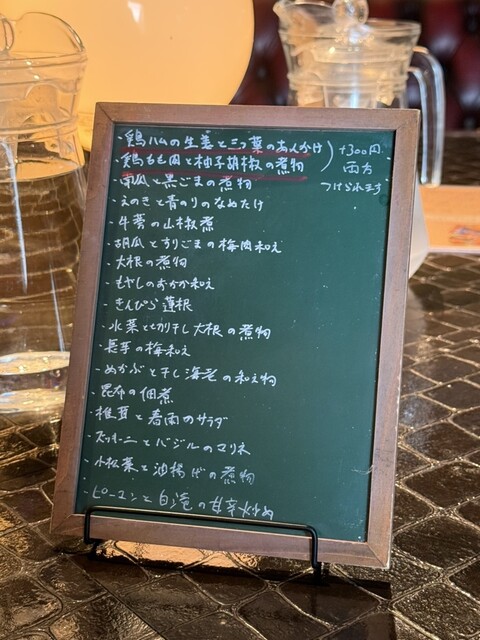 ・鶏ハムの生姜と三つ葉のあんかけ
・鶏もも肉と柚子胡椒の煮物
+300円
両方
つけられます
・南瓜と黒ごまの煮物
・えのきと青のりのなめたけ
・牛蒡の山椒煮
・胡瓜とすりごまの梅肉和え
・大根の煮物
・もやしのおかか和え
・きんぴら蓮根
・水菜と切り干し大根の煮物
・長芋の梅和え
・めかぶと干し海老の和え物
・昆布の佃煮
・椎茸と春雨のサラダ
・ズッキーニとバジルのマリネ
・小松菜と油揚げの煮物
・ピーマンと白滝の甘辛炒め